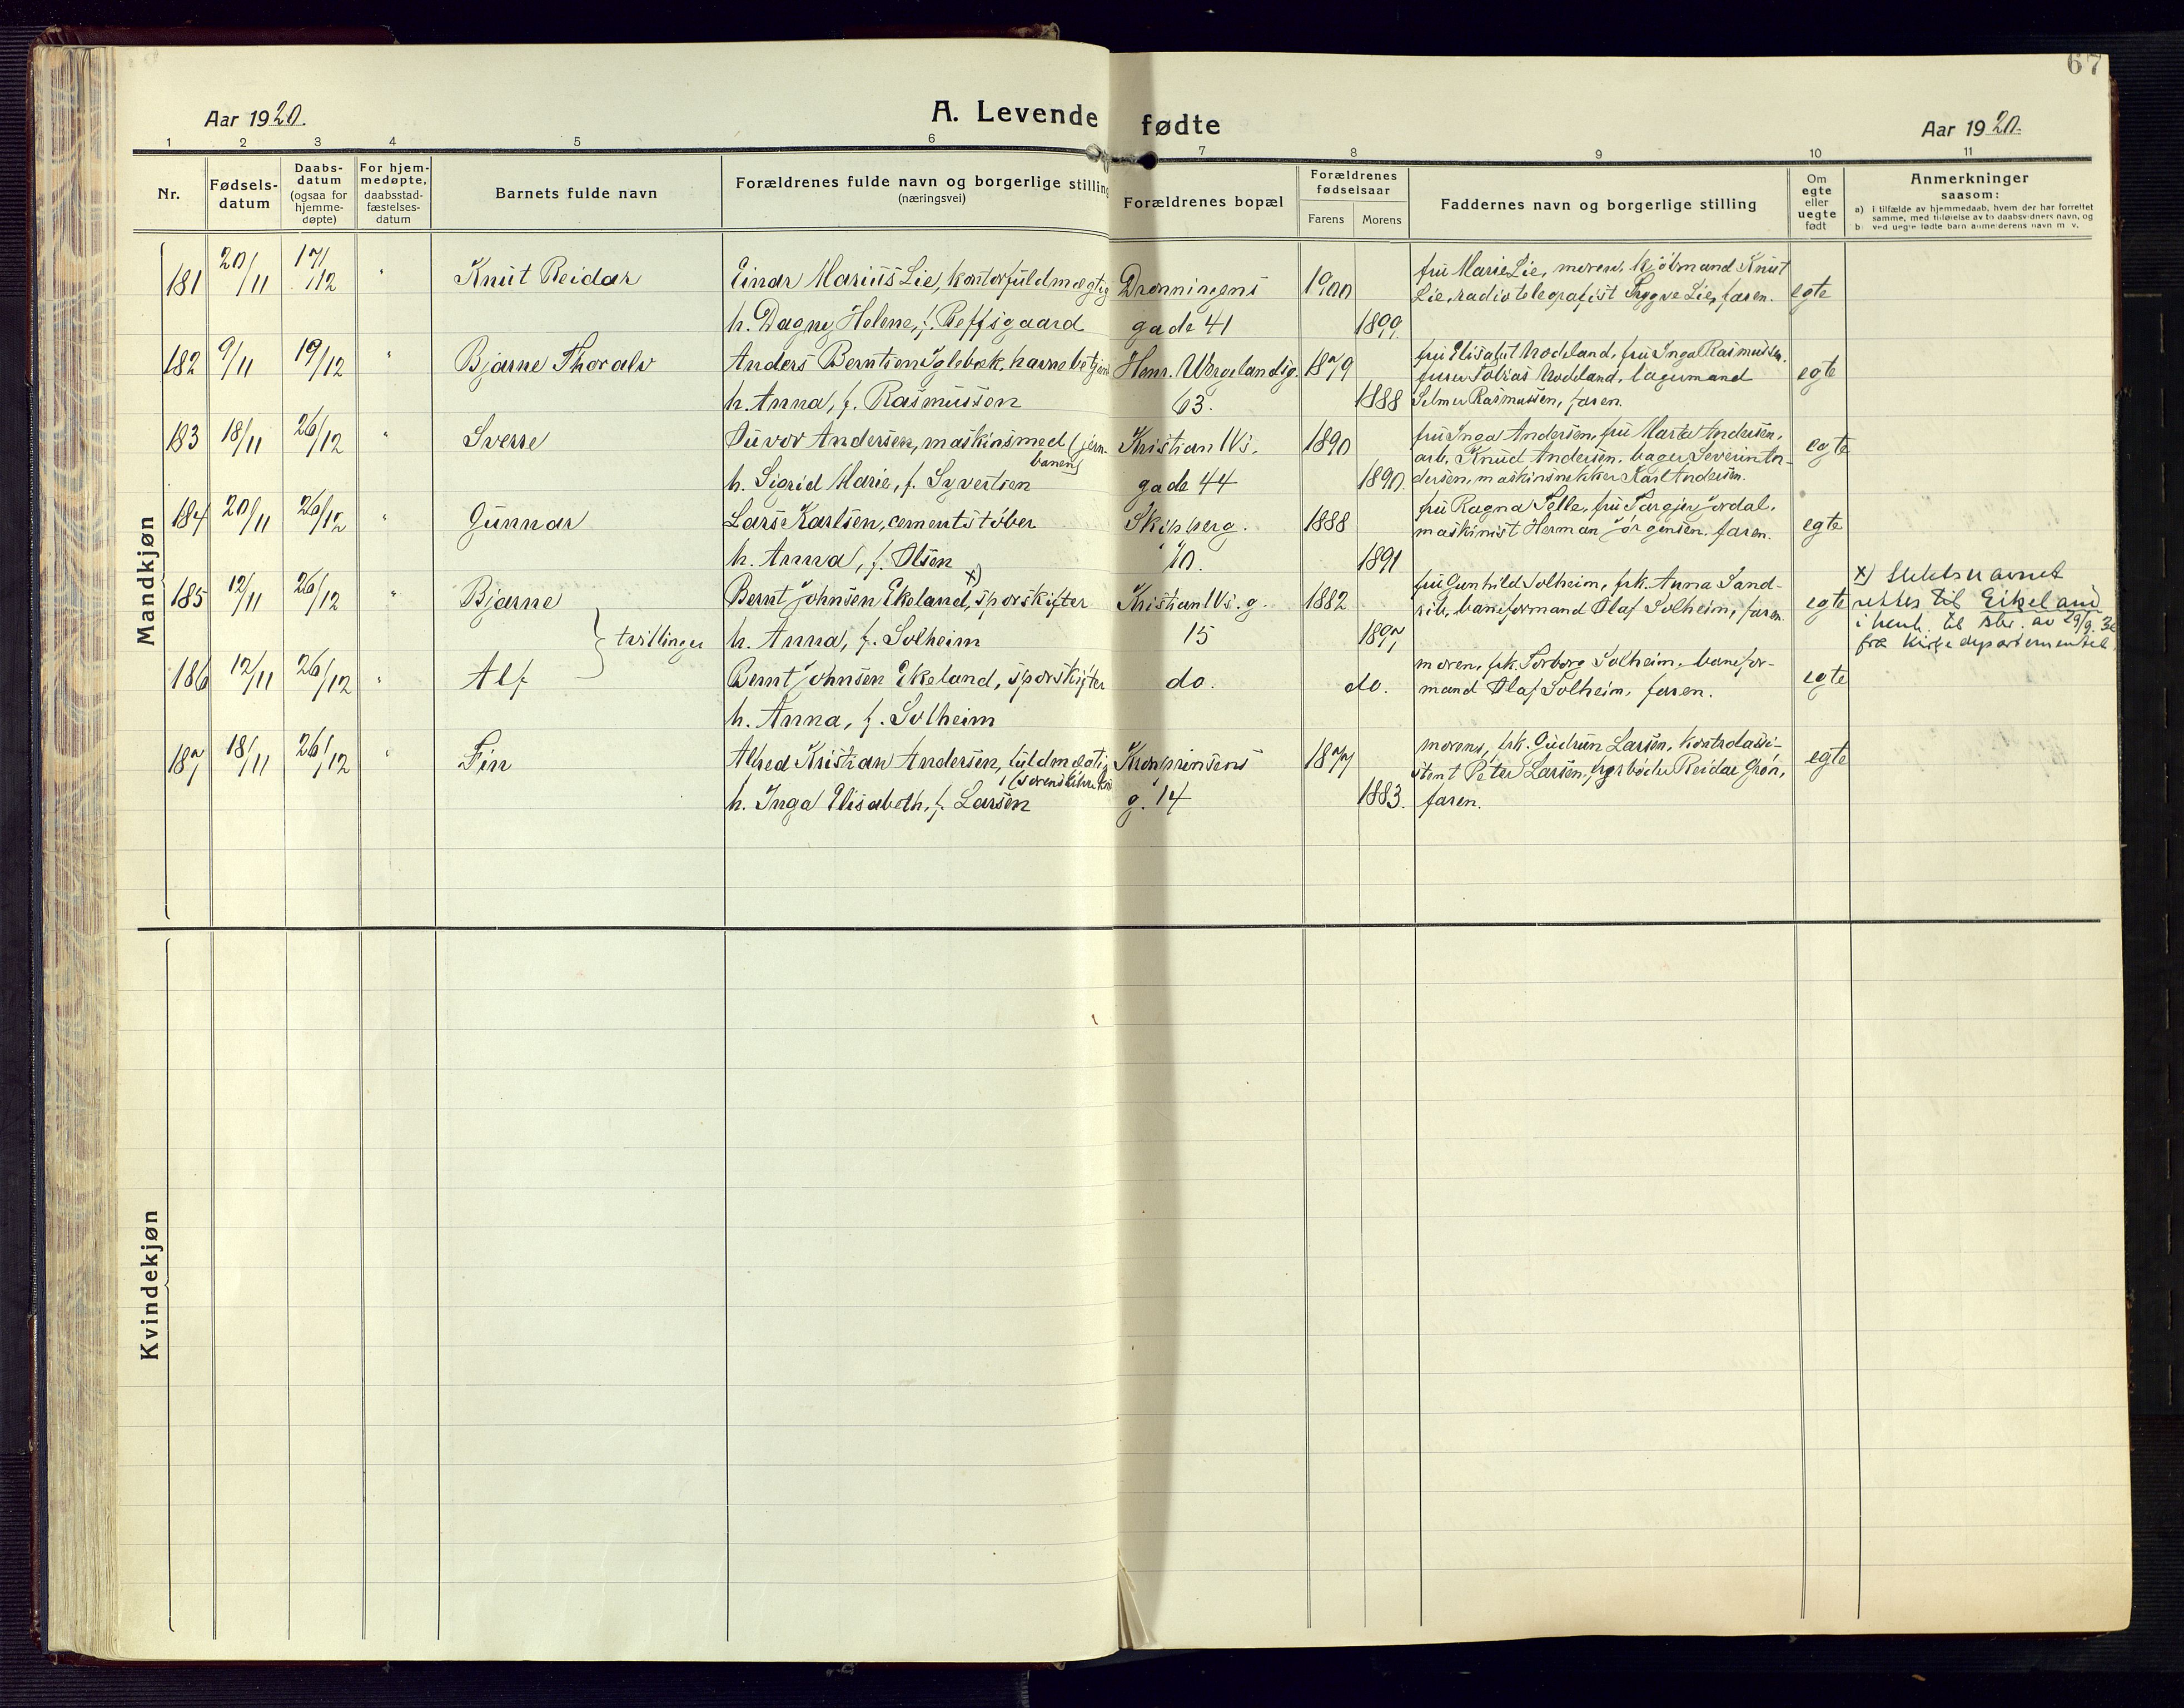 67
Aar 1920.
A. Levende fødte
Aar 1920.
1 2 3 4 5 6 7 8 9 10 11
Nr.
Fødsels-
datum
Daabs-
datum
(ogsaa for
hjemme-
døpte)
For hjem-
medøpte,
daabsstad-
fæstelses-
datum
Barnets fulde navn
Forældrenes fulde navn og borgerlige stilling
(næringsvei)
Forældrenes bopæl
Forældrenes
fødselsaar
Farens Morens
Faddernes navn og borgerlige stilling
Om
egte
eller
uegte
født
Anmerkninger
saasom:
a) i tilfælde av hjemmedaab, hvem der har forrettet
samme, med tilføielse av to daabsvidners navn, og
b) ved uegte fødte barn anmelderens navn m. v.
Mandkjøn
181 20/11 17/12 " Knut Reidar Einar Marius Lie, kontorfuldmægtig Dronningens 1900 fru Marie Lie, moren, kjøbmand Knut
Lie, radiotelegrafist Trygve Lie, faren. egte
h. Dagny Helene, f. Reffsgaard gade 41 1899.
182 9/11 19/12 " Bjarne Thoralv Anders Berntsen Iglebæk, havnebetjent Henr. Wergelandsg. 1879 fru Elisabet Modeland, fru Inga Rasmussen,
Tobias Modeland, lagermand egte
h. Anna, f. Rasmussen 63. 1888 Selmer Rasmussen, faren.
183 18/11 26/12 " Sverre Andersen, maskinsmed (jern-
banen) Kristian IVs. 1890 fru Inga Andersen, fru Marta Andersen,
arb. Knud Andersen, bager Severin An- egte
h. Sigrid Marie, f. Syvertsen gade 44 1890. dersen, maskinsnekker Karl Andersen.
184 20/11 26/12 " Gunnar Lars Karlsen, cementstøber Skipperg. 1888 fru Ragna Selle, fru Targjer Jordal,
maskinist Herman Jørgensen, faren. egte
h. Anna, f. Olsen 10. 1891
185 12/11 26/12 " Bjarne Bernt Johnsen Ekeland, x) sporskifter Kristian IVs. g. 1882 fru Gunhild Solheim, frk. Anna Sand-
rib, baneformand Olaf Solheim, faren. egte
x) Slektsnavnet
rettes til Eikeland
i henh. til skr. av 29/9.
fra Kirkedepartementet.
tvillinger h. Anna, f. Solheim 15 1897
186 12/11 26/12 " Alf Bernt Johnsen Ekeland, sporskifter do. do. moren, frk. Torborg Solheim, banefor-
mand Olaf Solheim, faren. egte
h. Anna, f. Solheim
187 18/11 26/12 " Fin Alfred Kristian Andersen, fuldmægtig Kronprinsens 1877 moren, frk. Gudrun Larsen, kontorassi-
stent Peter Larsen, Reidar Grøn, egte
h. Inga Elisabeth, f. Larsen g. 14 1883. faren.
Kvindekjøn